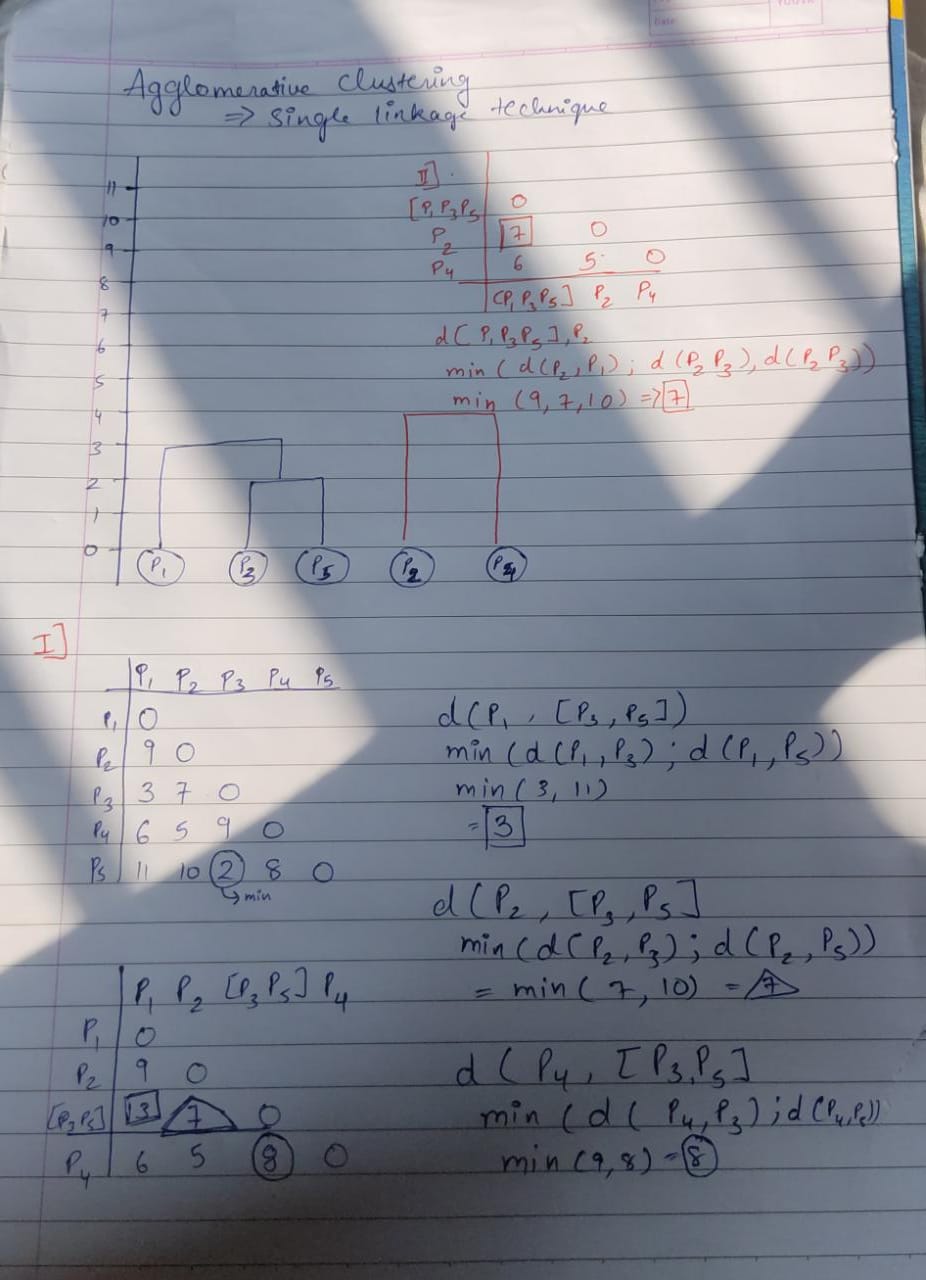 Date
Agglomerative Clustering
⇒ Single linkage technique
11
10
9
8
7
6
5
4
3
2
1
0
P₁ P₃ P₅ P₂ P₄
II].
[P₁P₃P₅ 0
P₂ 7 0
P₄ 6 5 0
[P₁P₃P₅] P₂ P₄
d[P₁P₃P₅],P₂
min (d(P₂,P₁); d(P₂P₃),d(P₂P₃))
min (9,7,10) ⇒ 7
I]
P₁ P₂ P₃ P₄ P₅
P₁ 0
P₂ 9 0
P₃ 3 7 0
P₄ 6 5 9 0
P₅ 11 10 2 8 0
↳ min
d(P₁, [P₃,P₅])
min (d(P₁,P₃); d(P₁,P₅))
min(3, 11)
= 3
d(P₂, [P₃,P₅]
min(d(P₂,P₃); d(P₂,P₅))
= min(7,10) = 7
P₁ P₂ [P₃P₅] P₄
P₁ 0
P₂ 9 0
[P₃P₅] 3 7 0
P₄ 6 5 8 0
d(P₄, [P₃,P₅]
min (d(P₄,P₃);d(P₄,P₅))
min(9,8) = 8